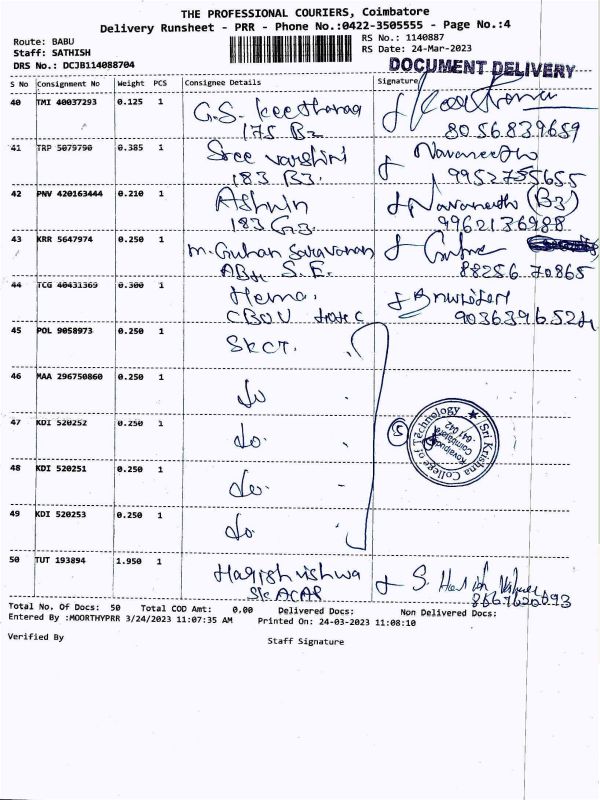 THE PROFESSIONAL COURIERS, Coimbatore
Delivery Runsheet - PRR - Phone No.:0422-3505555 - Page No.:4
Route: BABU
Staff: SATHISH
DRS No.: DCJB114088704
RS No.: 1140887
RS Date: 24-Mar-2023
DOCUMENT DELIVERY
S No Consignment No Weight PCS Consignee Details Signature
40 TMI 40037293 0.125 1 G.S. Keetharaa
175 B2 8056839659
41 TRP 5079790 0.385 1 Sree varshini Navaneetha
183 B3. 9952755655
42 PNV 420163444 0.210 1 Ashwin Navaneetha (B3)
183 G3 9962136988
43 KRR 5647974 0.250 1 M. Guhan Saravanan
S.E. 88256 70865
44 TCG 40431369 0.300 1 Hema.
9036396524
45 POL 9058973 0.250 1 SKCT.
46 MAA 296750860 0.250 1 do
47 KDI 520252 0.250 1 do. 5
48 KDI 520251 0.250 1 do.
49 KDI 520253 0.250 1 do
Sri Krishna College of Technology
Kovaipudur
Coimbatore
641 042
50 TUT 193894 1.950 1 Harish vishwa S. Harish
SKACAS 8667620693
Total No. Of Docs: 50 Total COD Amt: 0.00 Delivered Docs: Non Delivered Docs:
Entered By :MOORTHYPRR 3/24/2023 11:07:35 AM Printed On: 24-03-2023 11:08:10
Verified By Staff Signature